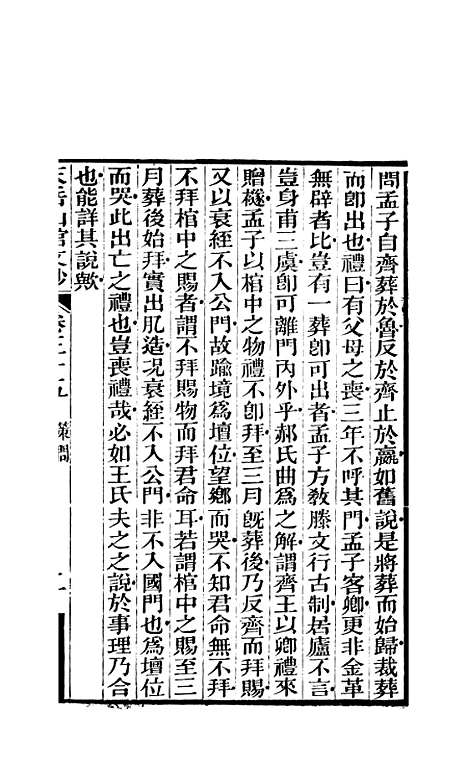 問孟子自齊葬於魯反於齊止於嬴如舊說是將葬而始歸裁葬
而卽出也禮曰有父母之喪三年不呼其門孟子客卿更非金革
無辟者比豈有一葬卽可出者孟子方敎滕文行古制居廬不言
豈身甫三虞卽可離門內外乎郝氏曲爲之解謂齊王以卿禮來
贈襚孟子以棺中之物禮不卽拜至三月旣葬後乃反齊而拜賜
又以衰絰不入公門故踰境爲壇位望鄕而哭不知君命無不拜
不拜棺中之賜者謂不拜賜物而拜君命耳若謂棺中之賜至三
月葬後始拜實出肊造况衰絰不入公門非不入國門也爲壇位
而哭此出亡之禮也豈喪禮哉必如王氏夫之之說於事理乃合
也能詳其說歟
山館文鈔 卷三十九 策問